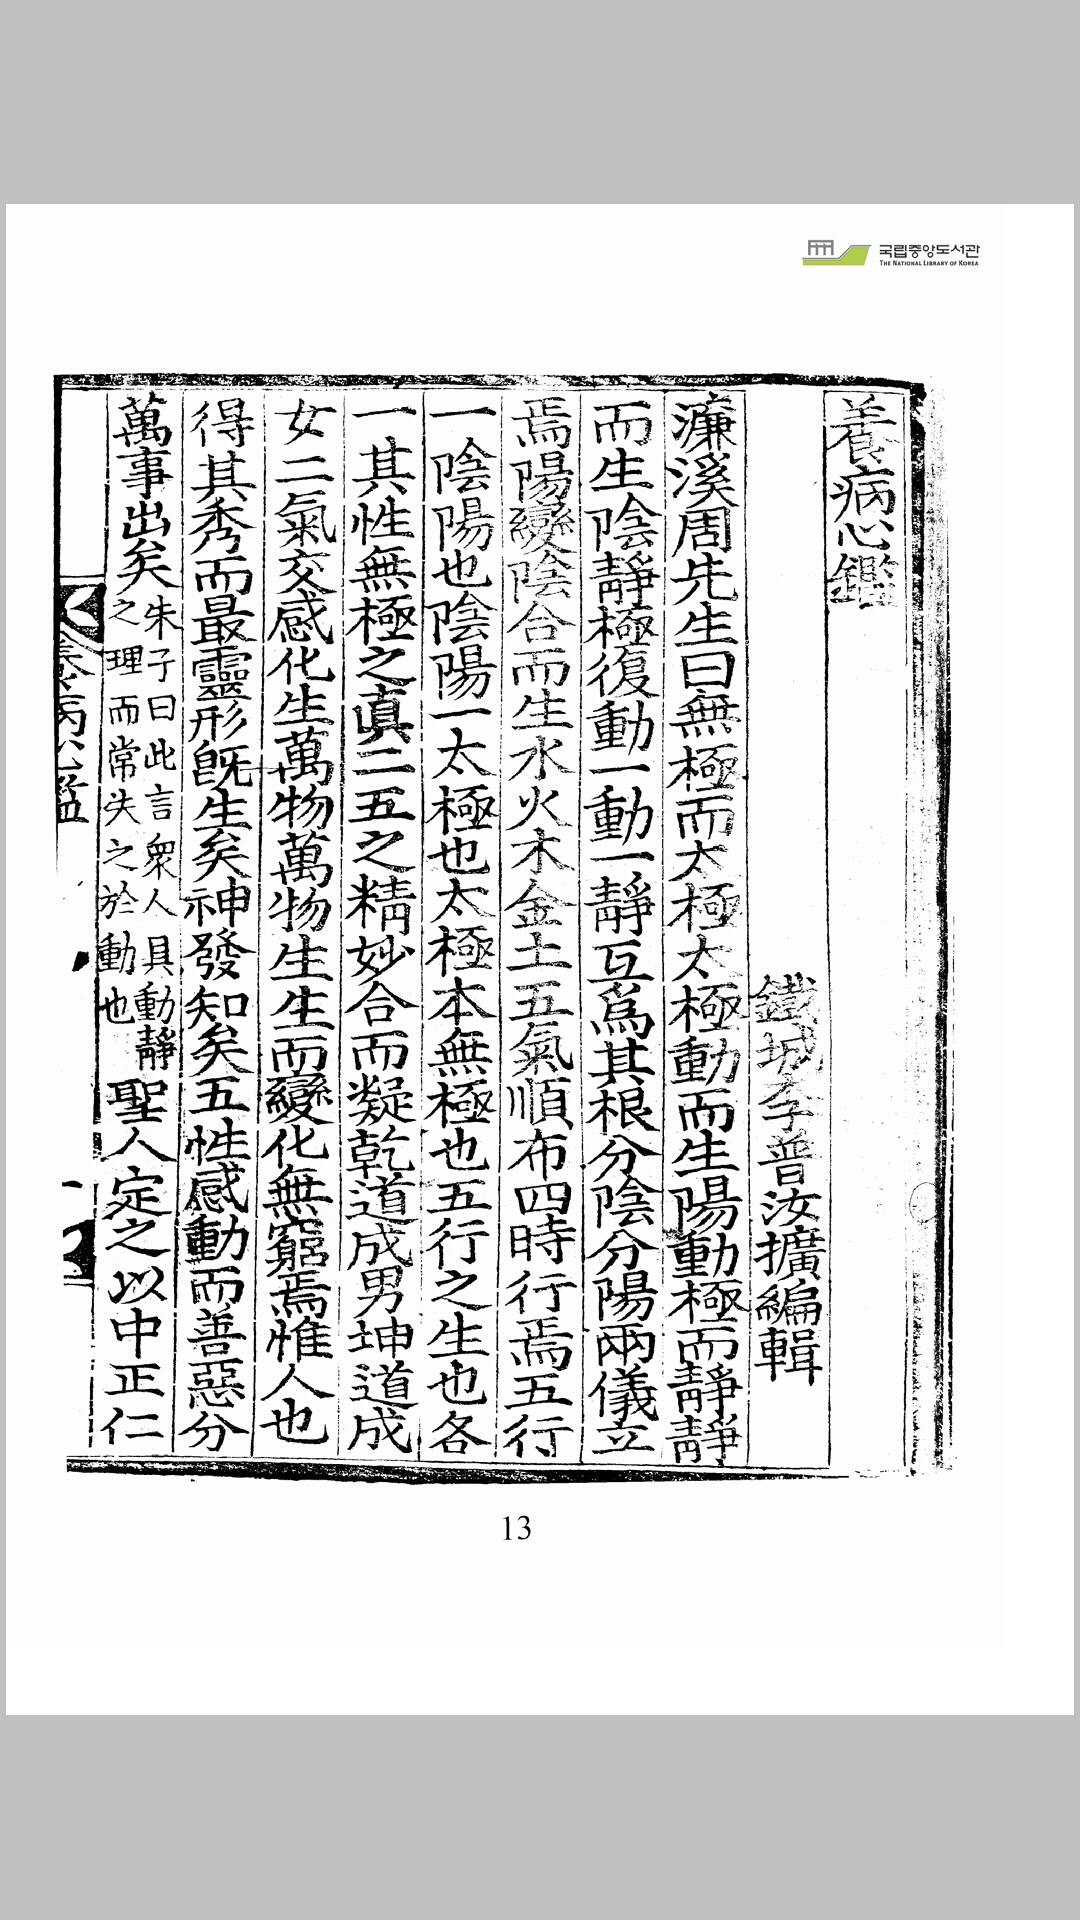 국립중앙도서관
THE NATIONAL LIBRARY OF KOREA
養病心鑑
鐵城李普汝擴編輯
濂溪周先生曰無極而太極太極動而生陽動極而靜靜
而生陰靜極復動一動一靜互爲其根分陰分陽兩儀立
焉陽變陰合而生水火木金土五氣順布四時行焉五行
一陰陽也陰陽一太極也太極本無極也五行之生也各
一其性無極之眞二五之精妙合而凝乾道成男坤道成
女二氣交感化生萬物萬物生生而變化無窮焉惟人也
得其秀而最靈形旣生矣神發知矣五性感動而善惡分
萬事出矣朱子曰此言衆人具動靜
之理而常失之於動也聖人定之以中正仁
養病心鑑
一
13